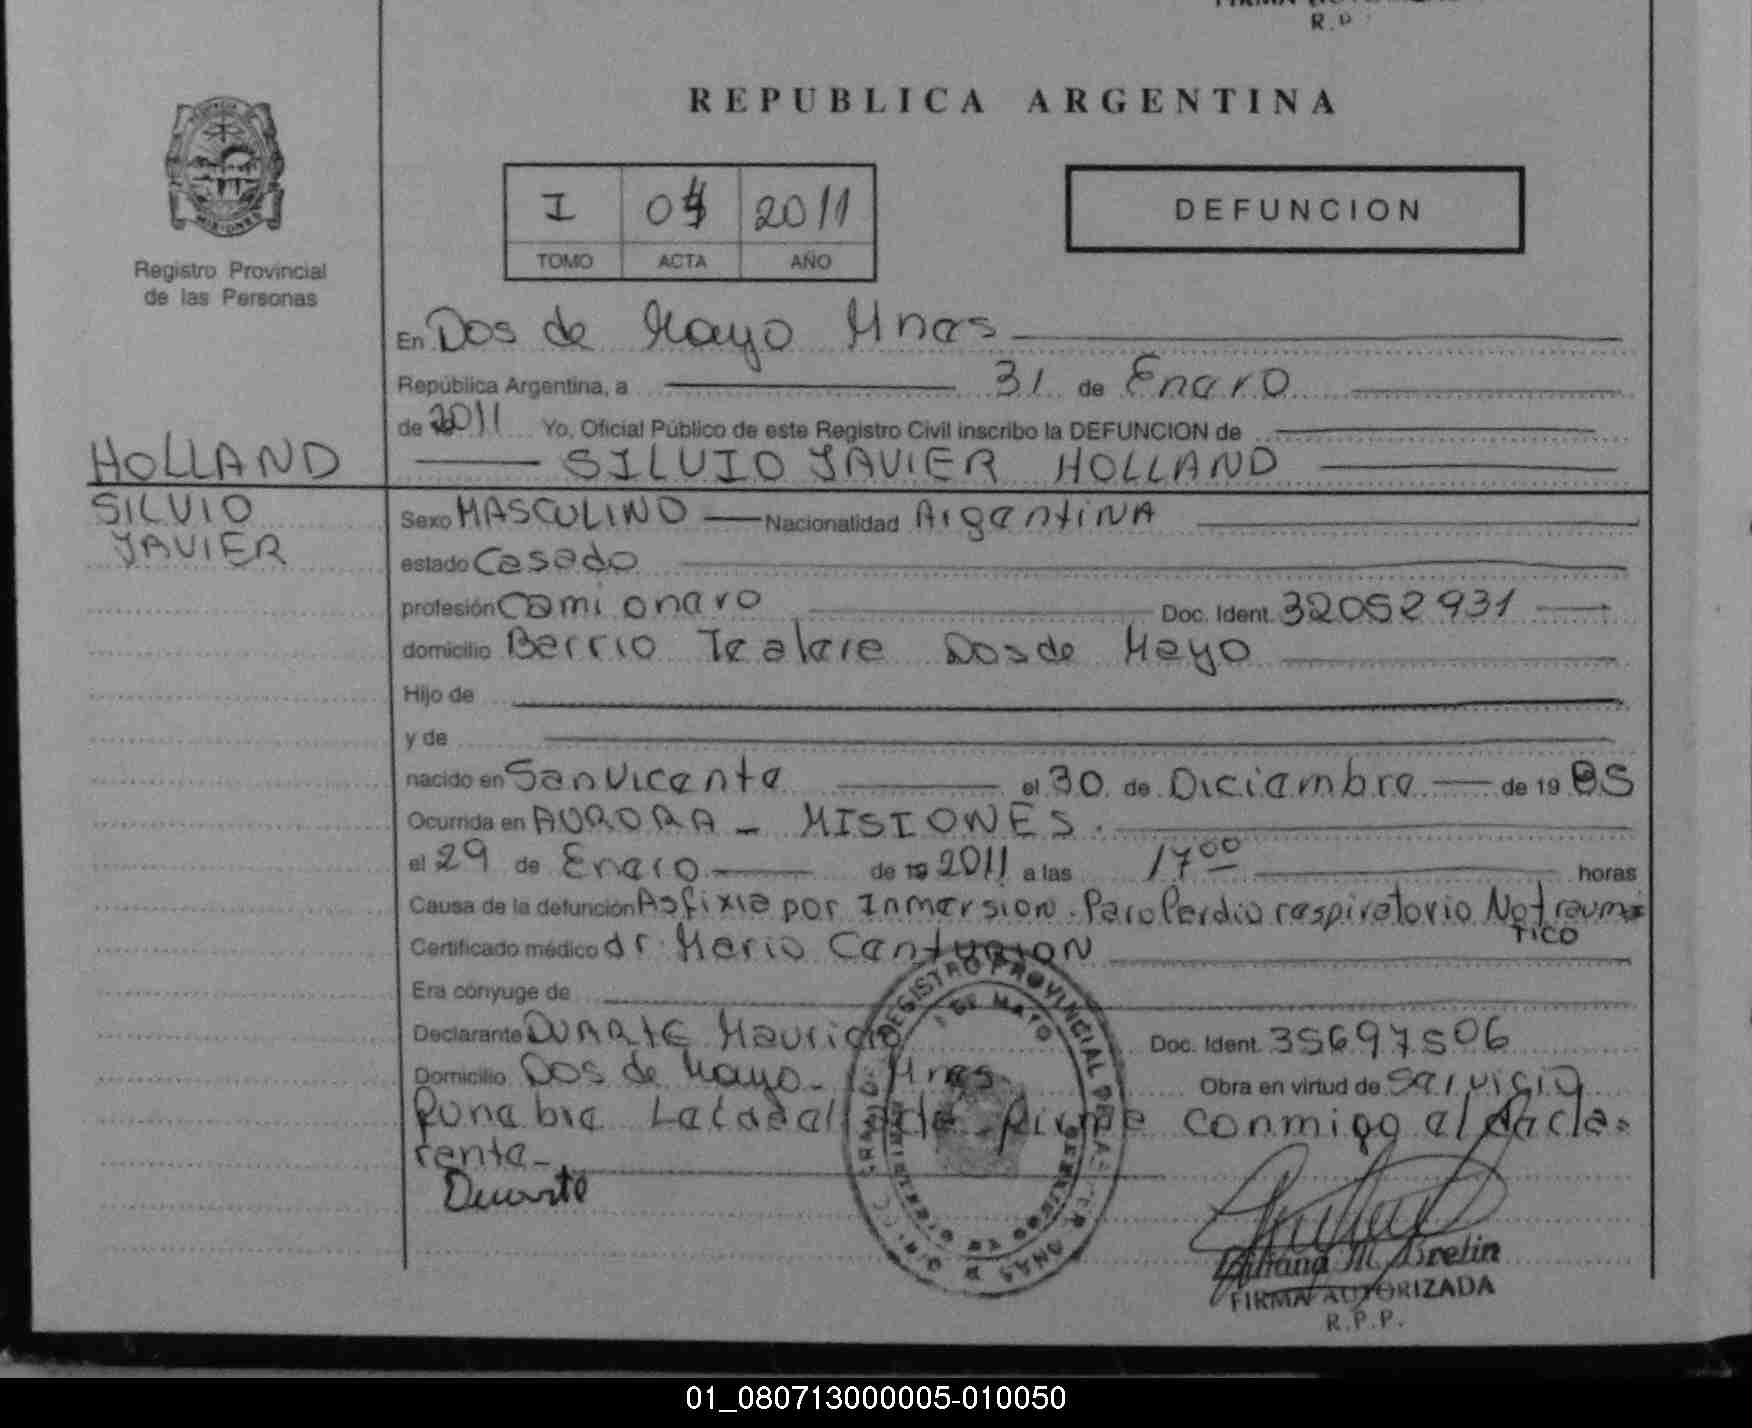 R.P.
REPUBLICA ARGENTINA
I 04 2011
TOMO ACTA AÑO
DEFUNCION
Registro Provincial
de las Personas
En Dos de Mayo Mnes
República Argentina, a 31 de Enero
de 2011 Yo, Oficial Público de este Registro Civil inscribo la DEFUNCION de
SILVIO JAVIER HOLLAND
HOLLAND
SILVIO
JAVIER
Sexo MASCULINO Nacionalidad ArgentiNA
estado Casado
profesión Camionero Doc. Ident. 32052931
domicilio Barrio Dos de Mayo
Hijo de
y de
nacido en San Vicente el 30 de Diciembre de 19 85
Ocurrida en AURORA - MISIONES.
el 29 de Enero de 19 2011 a las 17 00 horas
Causa de la defunción Asfixia por Inmersion. Paro Cardio respiratorio No trauma
TICO
Certificado médico dr. Mario
Era cónyuge de
Declarante DUARTE Mauricio Doc. Ident. 35697506
Domicilio Dos de Mayo - Mnes. Obra en virtud de servicio
funebre La Firma conmigo el decla-
rante-
Duarte
REGISTRO PROVINCIAL DE LAS PERSONAS
2 DE MAYO
MISIONES
Liliana M. Brelin
FIRMA AUTORIZADA
R.P.P.
01_080713000005-010050